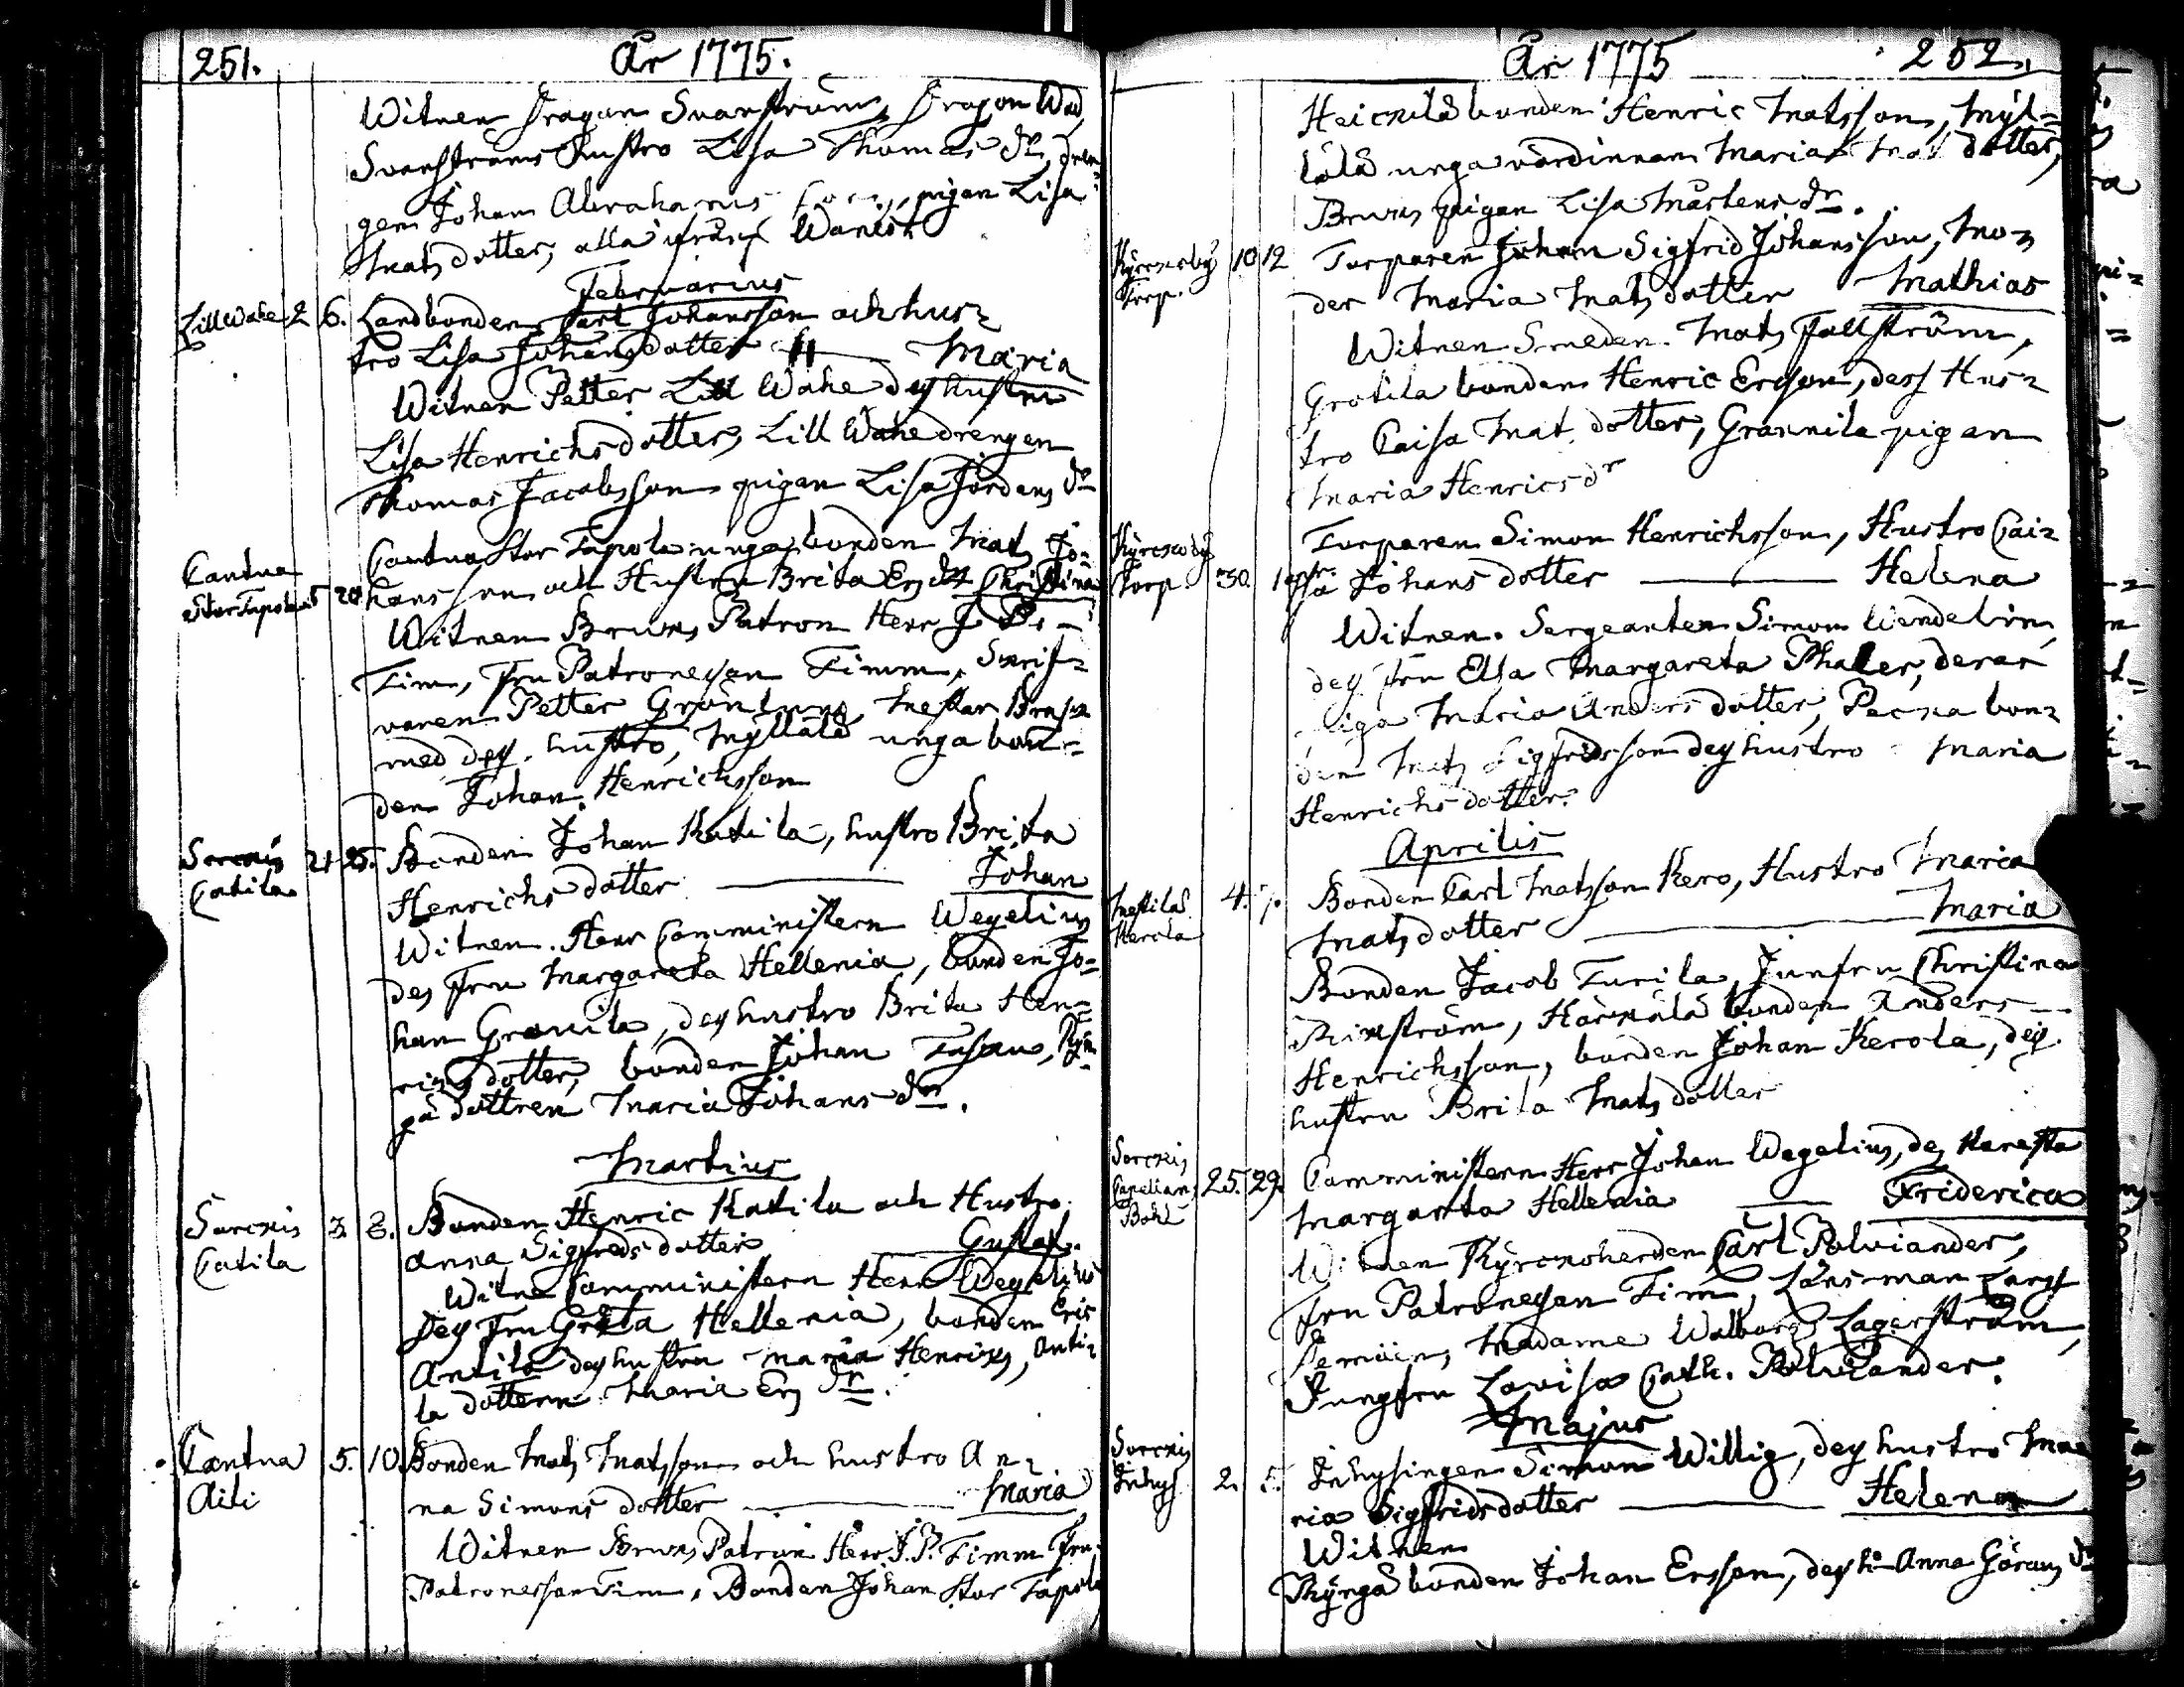 251.
År 1775.
Witnen Dragon Svanström, Dragon
Svanströms Hustro Lisa Thomas dr, dren-
gen Johan Abrahams son, pigan Lisa
Mats dotter, alla ifrån
Februarius
Lill Wahe 2 6. Landbonden Carl Johansson och hus-
tro Lisa Johansdotter Maria
Witnen Petter Lill Wahe des hustru
Lisa Henrichsdotter, Lill Wahe drengen
Thomas Jacobsson pigan Lisa Jördens dr
Cantua Stor Tapola unga bonden Mats Jo-
Cantua
Stor Tapola 15 20 hansson och Hustru Brita Ers dr Christina
Witnen Bruns Patron Herr J P
Timm, Fru Patronessan Timm, Skrif-
varen Petter Grönlund, Mestar
med des hustro, Myllälä unga bon-
den Johan Henrichsson
Sorckis 21 25. Bonden Johan Katila, hustro Brita
Catila
Henrichs dotter Johan
Witnen. Herr Comministern Wegelius
des Fru Margareta Hellenia, bonden Jo-
han Granila, des hustro Brita Hen-
rics dotter, bonden Johan
gä dottren Maria Johans dr.
Martius
Sorckis 3. 8. Bonden Henric Katila och Hustro
Catila
Anna Sigfreds dotter Gustaf.
Witne Comministern Herr Wegelius
Des Fru Greta Hellenia, bonden Eric
Antila des hustru Maria Henrics, Anti-
la dottern Maria Ers dr.
Cantua 5. 10. Bonden Mats Matsson och hustro An-
Aili
na Simons dotter Maria
Witnen Bruns Patron Herr J. P. Timm Fru
Patronessan Tim, Bonden Johan Stor Tapola
År 1775 252.
Heickilä bonden Henric Matsson, Myl-
lälä unga värdinnan Maria Mats dotter,
Bruns pigan Lisa Mårtens dr.
Kyrckoby 10 12 Torparen Johan Sigfrid Johansson, Mo-
Torp.
der Maria Mats dotter Mathias
Witnen Smeden Mats Fallström,
Grotila bonden Henric Ersson, dess Hus-
tro Caisa Mats dotter, Grannila pigan
Maria Henrics dr
Kyrckoby Torparen Simon Henrichsson, Hustro Cai-
Torp. 30. 1 Apr. sa Johans dotter Helena
Witnen. Sergeanten Simon Wendelin,
des fru Elsa Margareta Phaler, deras
piga Maria Anders dotter, Pecka bon-
den Mats Sigfridsson des hustro Maria
Henrichs dotter.
Aprilis
Mestilä 4. 7. Bonden Carl Matsson Kero, Hustro Maria
Kerola
Mats dotter Maria
Bonden Jacob Turila, Junfru Christina
Rinström, Härkälä bonden Anders
Henrichsson, bonden Johan Kerola, des
hustru Brita Mats dotter
Sorckis
Capellans 25. 29. Comministern Herr Johan Wegelius, des Käresta
Bohl
Margareta Hellenia Friderica
Witnen Kyrckoherden Carl Polviander,
Fru Patronessan Tim, Länsman Lars
Madame Walborg Lagerström,
Jungfru Lovisa Cath. Polviander.
Majus
Sorckis
Inhys 2. 5. Inhysingen Simon Willig, des hustro Ma-
ria Sigfridsdotter Helena
Witnen
Thyngä bonden Johan Ersson, des h Anna Görans dr